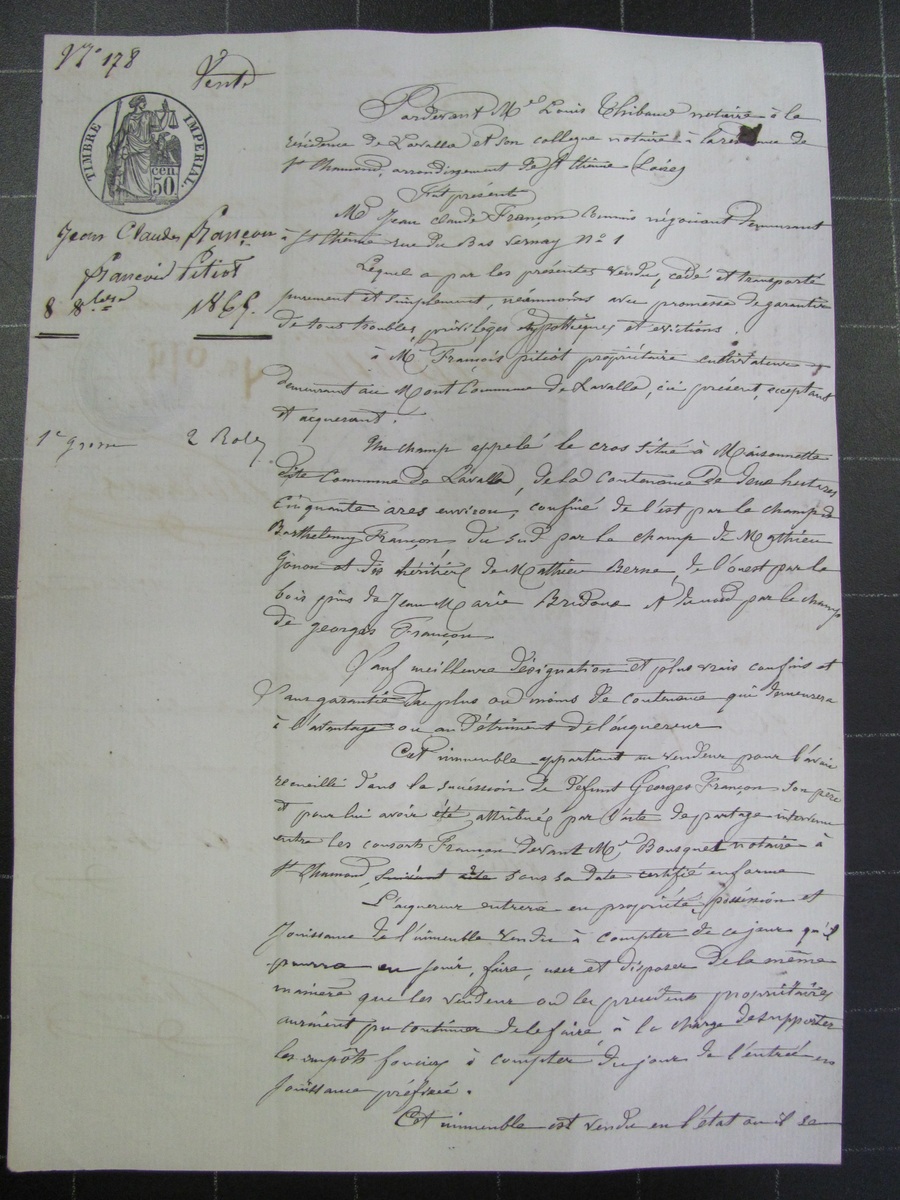 N° 178
Vente
TIMBRE IMPERIAL.
50 cen
Jean Claude Françon
à
François Pitiot
8 8bre 1865.
1e grosse 2 Roles
Pardevant Me Louis Thibaud notaire à la
résidence de Lavalla et son collègue notaire à la résidence de
St Chamond, arrondissement de St Etienne (Loire)
Fut présent
Mr Jean Claude Françon Commis négociant demeurant
à St Etienne rue du Bas Vernay N° 1
Lequel a par les présentes vendu, cédé et transporté
purement et simplement, néanmoins avec promesse de garantir
de tous troubles, privilèges hypothèques et evictions.
à Mr François pitiot propriétaire cultivateur
demeurant au Mont Commune de Lavalla, ici présent, acceptant
et acquerant.
Un champ appelé le cros situé à Maisonnette
dite Commune de Lavalla, de la contenance de deux hectares
cinquante ares environ, confiné de l'est par le champ de
Barthelemy Françon du sud par le champ de Mathieu
Gonon et des héritiers de Mathieu Berne, de l'ouest par le
bois pins de Jean Marie et du nord par le champ
de georges Françon
Sauf meilleure désignation et plus vrais confins et
sans garantie du plus ou moins de contenance qui demeurera
à l'avantage ou au détriment de l'acquereur
Cet immeuble appartient au vendeur pour l'avoir
recueilli dans la succession de défunt Georges Françon son père
et pour lui avoir été attribué par l'acte de partage intervenu
entre les consorts Françon devant Me Bousquet notaire à
St Chamond, suivant acte sous sa date certifié en forme
L'acquereur entrera en propriété, possession et
jouissance de l'immeuble vendu à compter de ce jour qu'il
pourra en jouir, faire, user et disposer de la même
manière que les vendeur ou les precedents propriétaires
auraient pu continuer de le faire à la charge de supporter
les impôts fonciers à compter du jour de l'entrée en
jouissance préfixée.
Cet immeuble est vendu en l'état ou il se